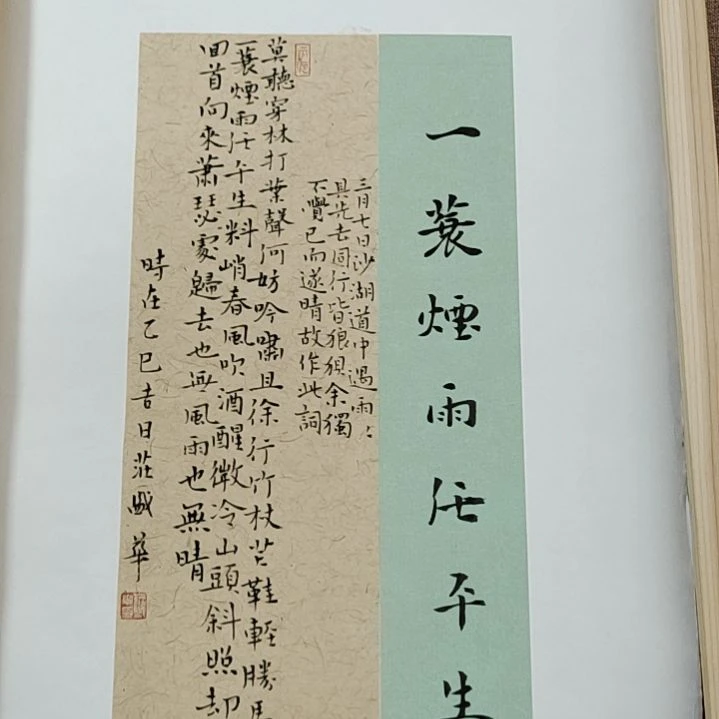 一蓑煙雨任平生
三月七日沙湖道中遇雨々
具先去同行皆狼狽余獨
不覺已而遂晴故作此詞
莫聽穿林打葉聲何妨吟嘯且徐行竹杖芒鞋輕勝馬
一蓑煙雨任平生料峭春風吹酒醒微冷山頭斜照却
回首向來蕭瑟處歸去也無風雨也無晴
時在乙巳吉日莊華